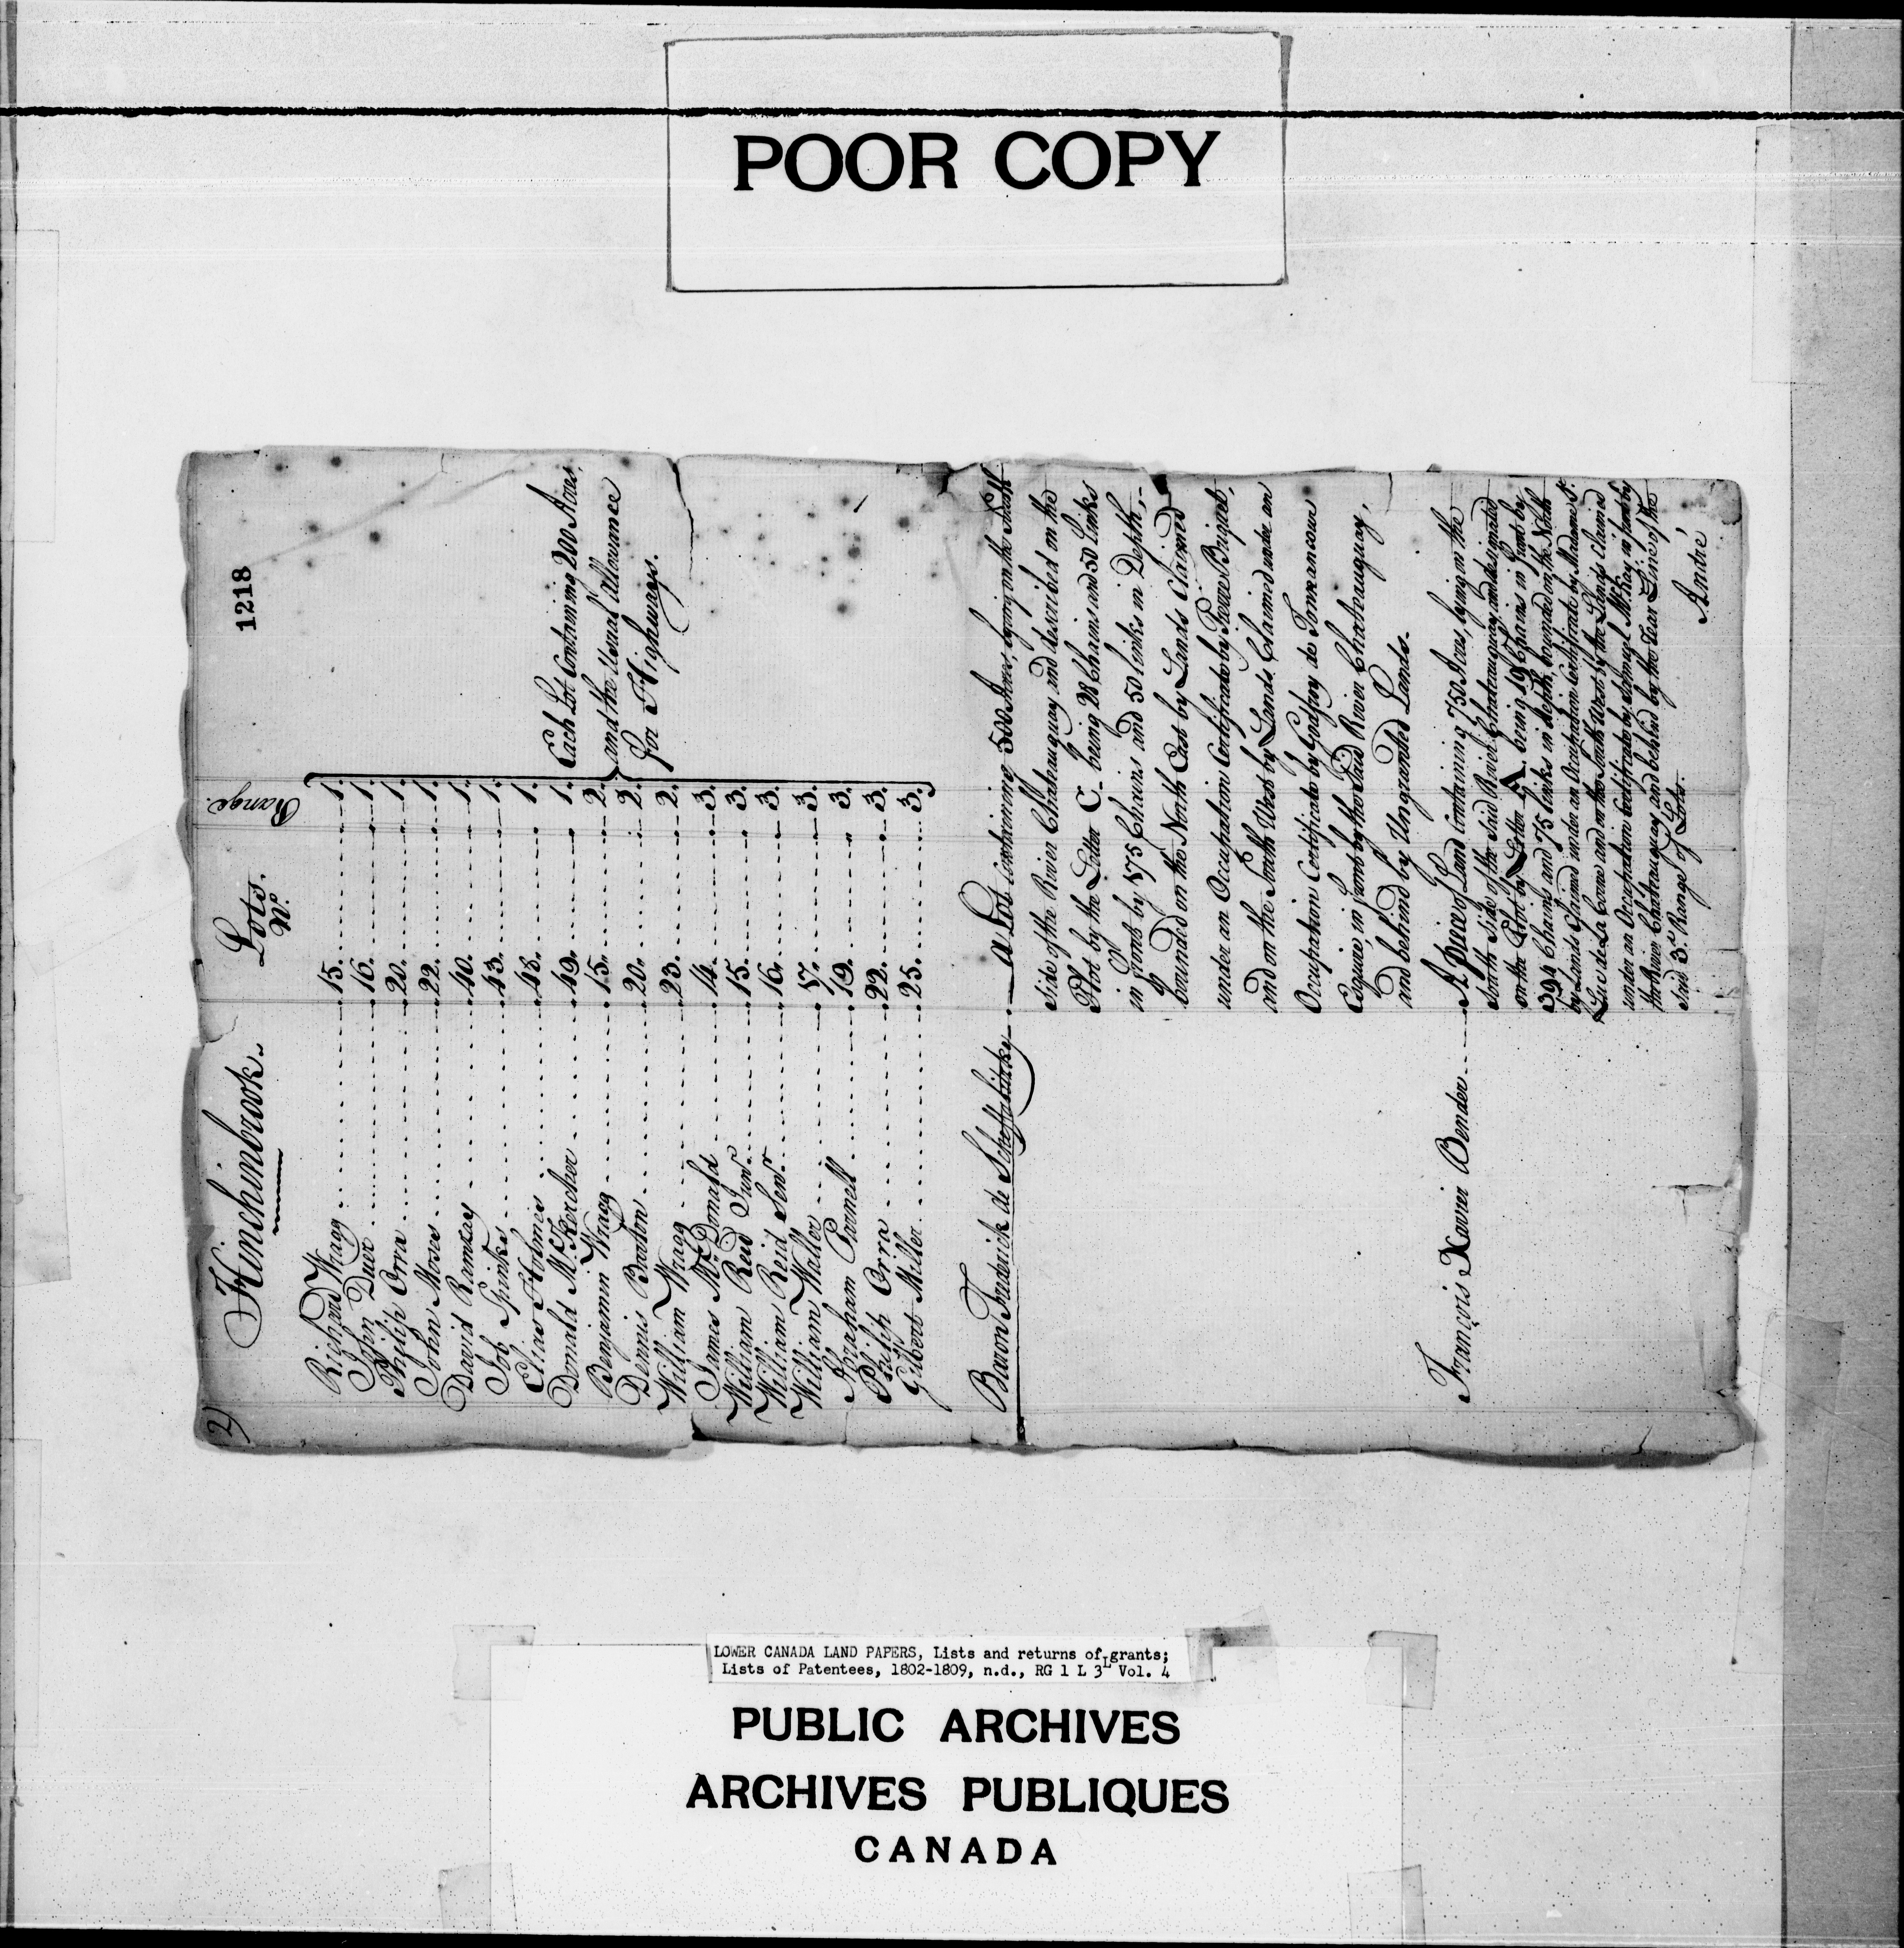 POOR COPY
1218
2)
Hinchinbrook.
Lots. Range.
No.
Richard Wragg 15. 1.
John Duer 16. 1.
Philip Orra 20. 1.
John Moses 22. 1.
David Ramsay 40. 1.
Job Spinks 43. 1.
Elias Holmes 48. 1.
Donald McKercher 49. 1.
Benjamin Wragg 15. 2.
Dennis Barton 20. 2.
William Wragg 23. 2.
James McDonald 14. 3.
William Reid Junr. 15. 3.
William Reid Senr. 16. 3.
William Waller 17. 3.
Abraham Parmell 19. 3.
Philip Orra 22. 3.
Gilbert Miller 25. 3.
Each Lot Containing 200 Acres,
and the Usual Allowance
for Highways.
Baron Frederick de Schaffalitzky. a Lot containing 500 Acres, lying on the South
side of the River Chateauguay and described on the
Plot by the Letter C. being 28 Chains and 50 Links
in front by 175 Chains and 50 links in Depth,
bounded on the North East by Lands Claimed
under an Occupation Certificate by Pierre Briquet,
and on the South West by Lands Claimed under an
Occupation Certificate by Godfroy de Tonnencour
Esquire, in front by the Said River Chateauguay,
and behind by Ungranted Lands.
François Xavier Bender A piece of Land Containing 750 Acres, lying on the
North Side of the Said River Chateauguay, and designated
on the Plot by Letter A. being 19 Chains in front by
394 Chains and 75 links in depth, bounded on the North
by Lands Claimed under an Occupation Certificate by Madame St.
Luc de La Corne and on the South West by the Lands Claimed
under an Occupation Certificate by Samuel McKay in front by
the River Chateauguay and behind by the rear Line of the
Said 3d. Range of Lots.
André
LOWER CANADA LAND PAPERS, Lists and returns of grants;
Lists of Patentees, 1802-1809, n.d., RG 1 L 3L Vol. 4
PUBLIC ARCHIVES
ARCHIVES PUBLIQUES
CANADA